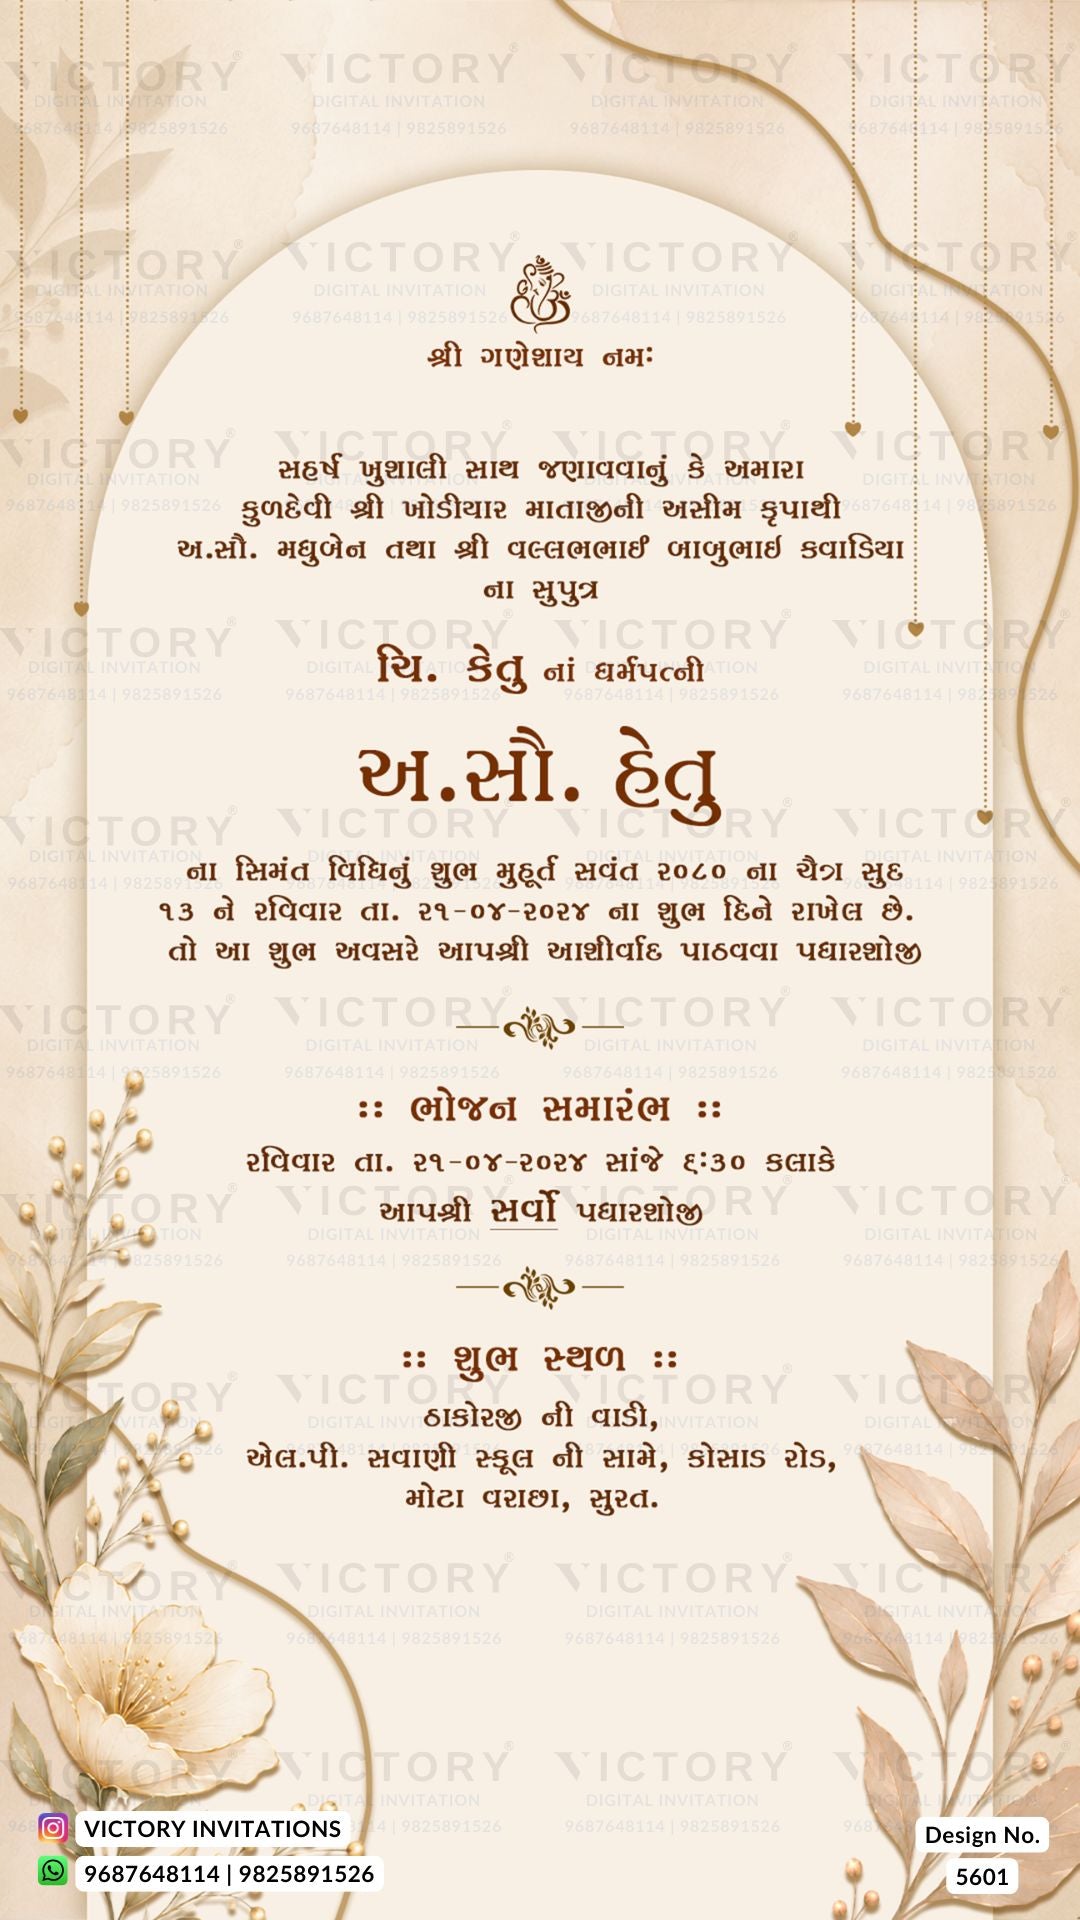 શ્રી ગણેશાય નમઃ
સહર્ષ ખુશાલી સાથ જણાવવાનું કે અમારા
કુળદેવી શ્રી ખોડીયાર માતાજીની અસીમ કૃપાથી
અ.સૌ. મધુબેન તથા શ્રી વલ્લભભાઈ બાબુભાઇ કવાડિયા
ના સુપુત્ર
ચિ. કેતુ નાં ધર્મપત્ની
અ.સૌ. હેતુ
ના સિમંત વિધિનું શુભ મુહૂર્ત સવંત ૨૦૮૦ ના ચૈત્ર સુદ
૧૩ ને રવિવાર તા. ૨૧-૦૪-૨૦૨૪ ના શુભ દિને રાખેલ છે.
તો આ શુભ અવસરે આપશ્રી આશીર્વાદ પાઠવવા પધારશોજી
:: ભોજન સમારંભ ::
રવિવાર તા. ૨૧-૦૪-૨૦૨૪ સાંજે ૬:૩૦ કલાકે
આપશ્રી સર્વો પધારશોજી
:: શુભ સ્થળ ::
ઠાકોરજી ની વાડી,
એલ.પી. સવાણી સ્કૂલ ની સામે, કોસાડ રોડ,
મોટા વરાછા, સુરત.
VICTORY INVITATIONS
9687648114 | 9825891526
Design No.
5601
VICTORY®
DIGITAL INVITATION
9687648114 | 9825891526